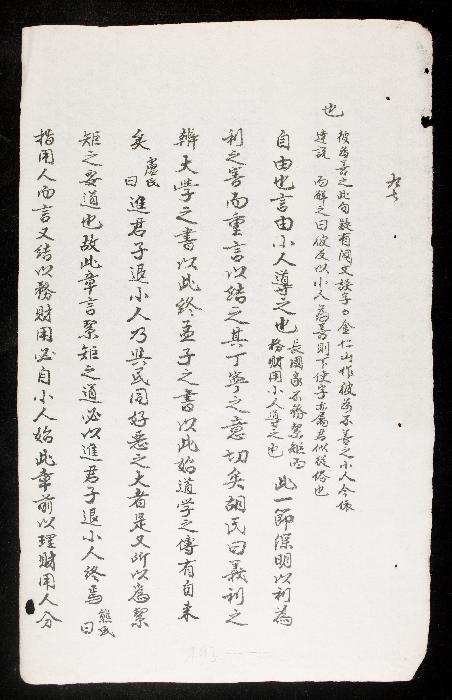 九七
彼為善之此句疑有闕文誤字○金仁山作彼為不善之小人今依
達說 而解之曰彼反以小人為善則下使字亦屬君似從俗也
也
自由也言由小人導之也 長國家不務絜矩而 務財用小人導之也 此一節深明以利為
利之害而重言以結之其丁寧之意切矣胡氏曰義利之
辨大學之書以此終孟子之書以此始道學之傳有自來
矣 盧氏曰 進君子退小人乃與民同好惡之大者是又所以為絜
矩之要道也故此章言絜矩之道必以進君子退小人終焉 熊氏曰
指用人而言又結以務財用必自小人始此章前以理財用人分